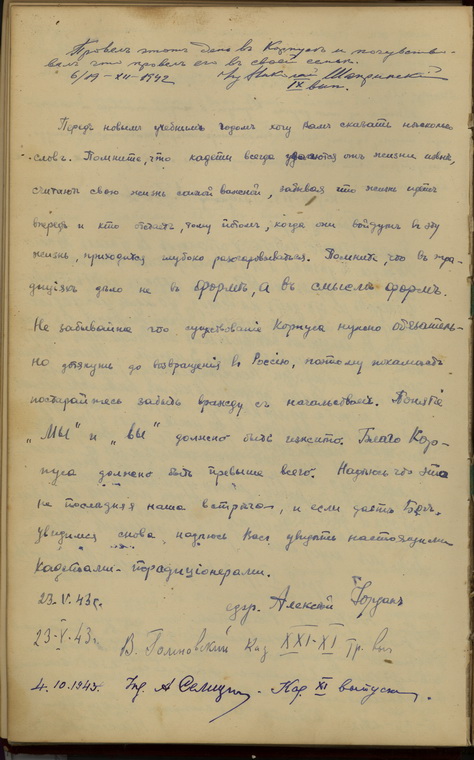 Провелъ этотъ день въ Корпусѣ и почувство-
валъ что провелъ его въ своей семьѣ.
6/19 - XII - 1942 Николай
IX вып.
Передъ новымъ учебнымъ годомъ хочу Вамъ сказать нѣсколько
словъ. Помните, что кадеты всегда отъ жизни
считаютъ свою жизнь самой важной, забывая что жизнь идетъ
впередъ и кто отстаетъ, тому потомъ, когда они войдутъ въ эту
жизнь, приходится глубоко разочаровываться. Помните, что въ тра-
диціяхъ дѣло не въ формѣ, а въ смыслѣ формъ.
Не забывайте что существованіе Корпуса нужно обязатель-
но дотянуть до возвращенія въ Россію, поэтому
постарайтесь забыть вражду съ начальствомъ. Понятіе
„мы" и „вы" должно быть изжито. Благо Кор-
пуса должно быть превыше всего. Надѣюсь что эта
не послѣдняя наша встрѣча, и если дастъ Богъ,
увидимся снова, надѣюсь Васъ увидѣть настоящими
кадетами-традиціонерами.
23. V. 43 г. Алексѣй
23-V-43 г. В. Кад XXI-XI вып
4. 10. 1943. А Кад. XI выпуска.